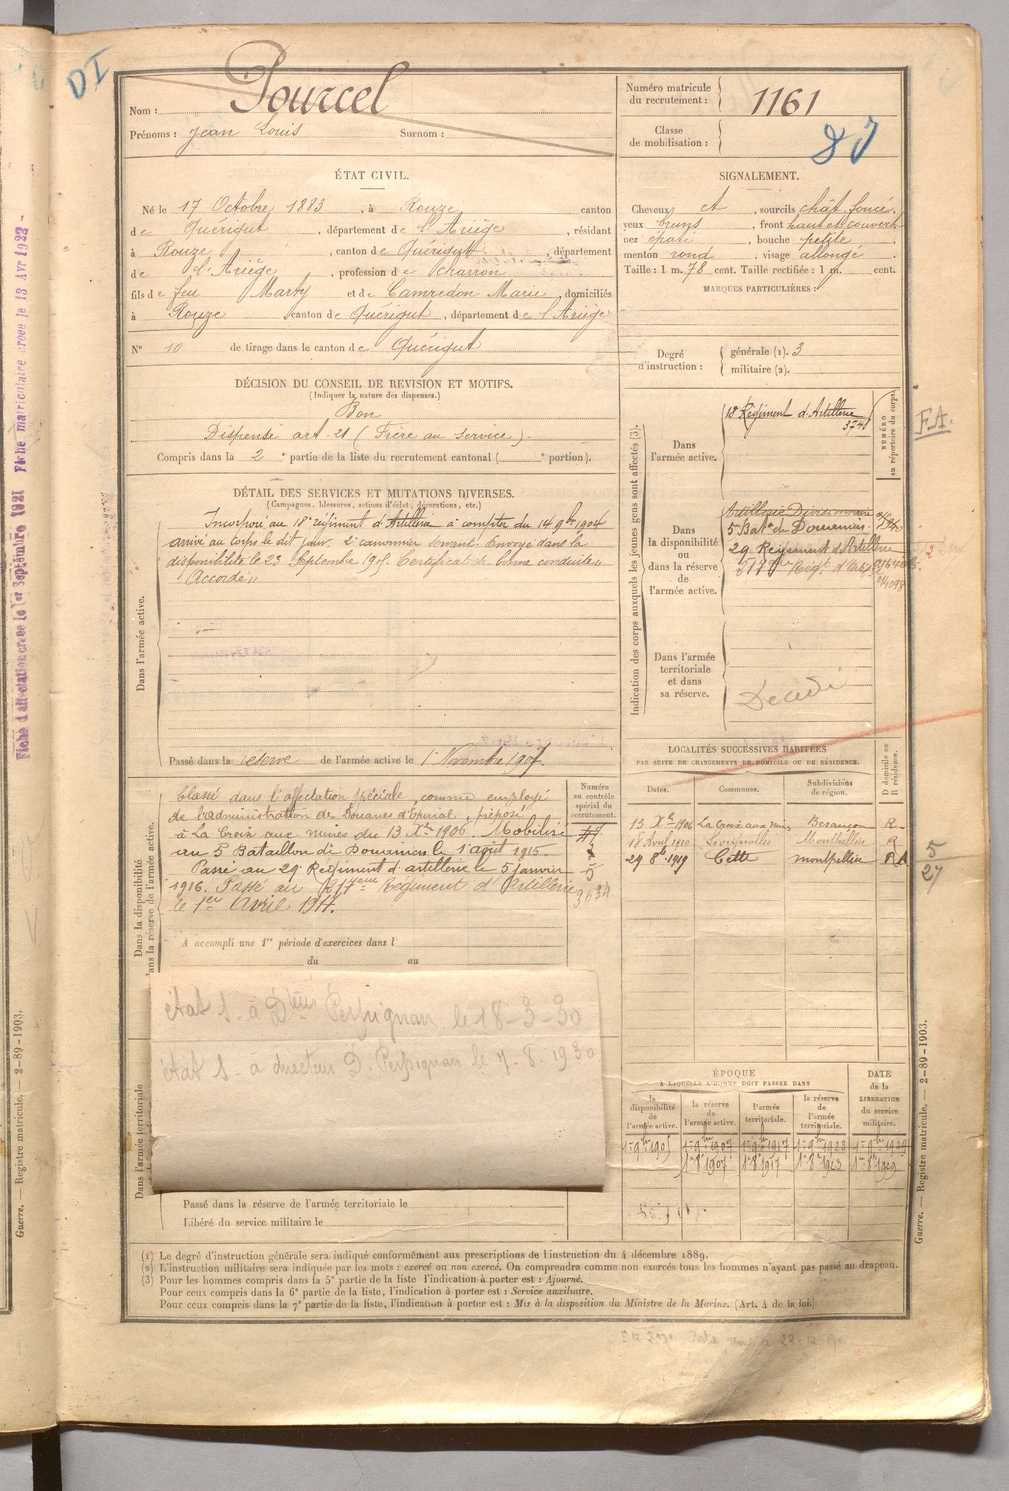 DI
Nom : Pourcel
Prénoms : Jean Louis Surnom :
Numéro matricule du recrutement : 1161
Classe de mobilisation :
ÉTAT CIVIL.
Né le 17 Octobre 1883, à Rouze canton
de Quérigut, département de l'Ariège, résidant
à Rouze, canton de Quérigut, département
de l'Ariège, profession de charron
fils de feu Marty et de Camredon Marie, domiciliés
à Rouze canton de Quérigut, département de l'Ariège
N° 10 de tirage dans le canton de Quérigut
SIGNALEMENT.
Cheveux ct, sourcils chât. foncé.
yeux bruns, front haut et couvert
nez épaté, bouche petite
menton rond, visage allongé
Taille : 1 m. 78 cent. Taille rectifiée : 1 m. cent.
MARQUES PARTICULIÈRES :
Degré d'instruction : générale (1). 3
militaire (2).
DÉCISION DU CONSEIL DE REVISION ET MOTIFS.
(Indiquer la nature des dispenses.)
Bon
Dispensé art. 21 (Frère au service).
Compris dans la 2e partie de la liste du recrutement cantonal ( e portion).
DÉTAIL DES SERVICES ET MUTATIONS DIVERSES.
(Campagnes, blessures, actions d'éclat, décorations, etc.)
Dans l'armée active.
Incorporé au 18e régiment d'Artillerie à compter du 14 9bre 1904
arrivé au Corps le dit jour. 2e canonnier servant. Envoyé dans la
disponibilité le 23 Septembre 1905. Certificat de bonne conduite
"Accordé"
Passé dans la réserve de l'armée active le 1er Novembre 1907
Indication des corps auxquels les jeunes gens sont affectés (3).
NUMÉRO au répertoire du corps.
Dans l'armée active.
18 Régiment d'Artillerie
3740
F.A.
Dans la disponibilité ou dans la réserve de l'armée active.
Artillerie Divisionnaire
5 Bat. de Douaniers
29 Régiment d'Artillerie
217e Rég. d'Art.
Dans l'armée territoriale et dans sa réserve.
Décédé
Dans la disponibilité ou dans la réserve de l'armée active.
Numéro au contrôle spécial du recrutement.
Classé dans l'affectation spéciale, comme employé
de l'administration des Douanes d'Épinal, préposé
à La Croix aux mines du 13 Xbre 1906. Mobilisé
au 5 Bataillon de Douaniers le 1 août 1915.
Passé au 29 Régiment d'artillerie le 5 janvier
1916. Passé au 217ème Régiment d'Artillerie
le 1er Avril 1917.
3634
A accompli une 1re période d'exercices dans l
du au
état S. à Dteur Perpignan le 18-3-30
état S. à directeur D. Perpignan le 7-8-1930
LOCALITÉS SUCCESSIVES HABITÉES
PAR SUITE DE CHANGEMENTS DE DOMICILE OU DE RÉSIDENCE.
Dates. Communes. Subdivisions de région. D domicile ou R résidence.
13 Xbre 1906 La Croix aux mines Besançon R
18 1910 Montpellier R
29 8b 1919 Cette montpellier
5
27
ÉPOQUE
À LAQUELLE L'HOMME DOIT PASSER DANS
la disponibilité de l'armée active. la réserve de l'armée active. l'armée territoriale. la réserve de l'armée territoriale. DATE de la LIBÉRATION du service militaire.
1er 9bre 1905 1er 9bre 1907 1er 9bre 1917 1er 9bre 1923 1er 9bre 1929
1er 8b 1907 1er 8b 1917 1er 8b 1923 1er 8b 1929
Dans l'armée territoriale
Passé dans la réserve de l'armée territoriale le
Libéré du service militaire le
(1) Le degré d'instruction générale sera indiqué conformément aux prescriptions de l'instruction du 4 décembre 1889.
(2) L'instruction militaire sera indiquée par les mots : exercé ou non exercé. On comprendra comme non exercés tous les hommes n'ayant pas passé au drapeau.
(3) Pour les hommes compris dans la 5e partie de la liste l'indication à porter est : Ajourné.
Pour ceux compris dans la 6e partie de la liste, l'indication à porter est : Service auxiliaire.
Pour ceux compris dans la 7e partie de la liste, l'indication à porter est : Mis à la disposition du Ministre de la Marine. (Art. 4 de la loi)
Guerre. — Registre matricule. — 2-89-1903.
Guerre. — Registre matricule. — 2-89-1903.
Fiche d'affectation créée le 1er Septembre 1921 Fiche matriculaire créée le 13 Avr 1922